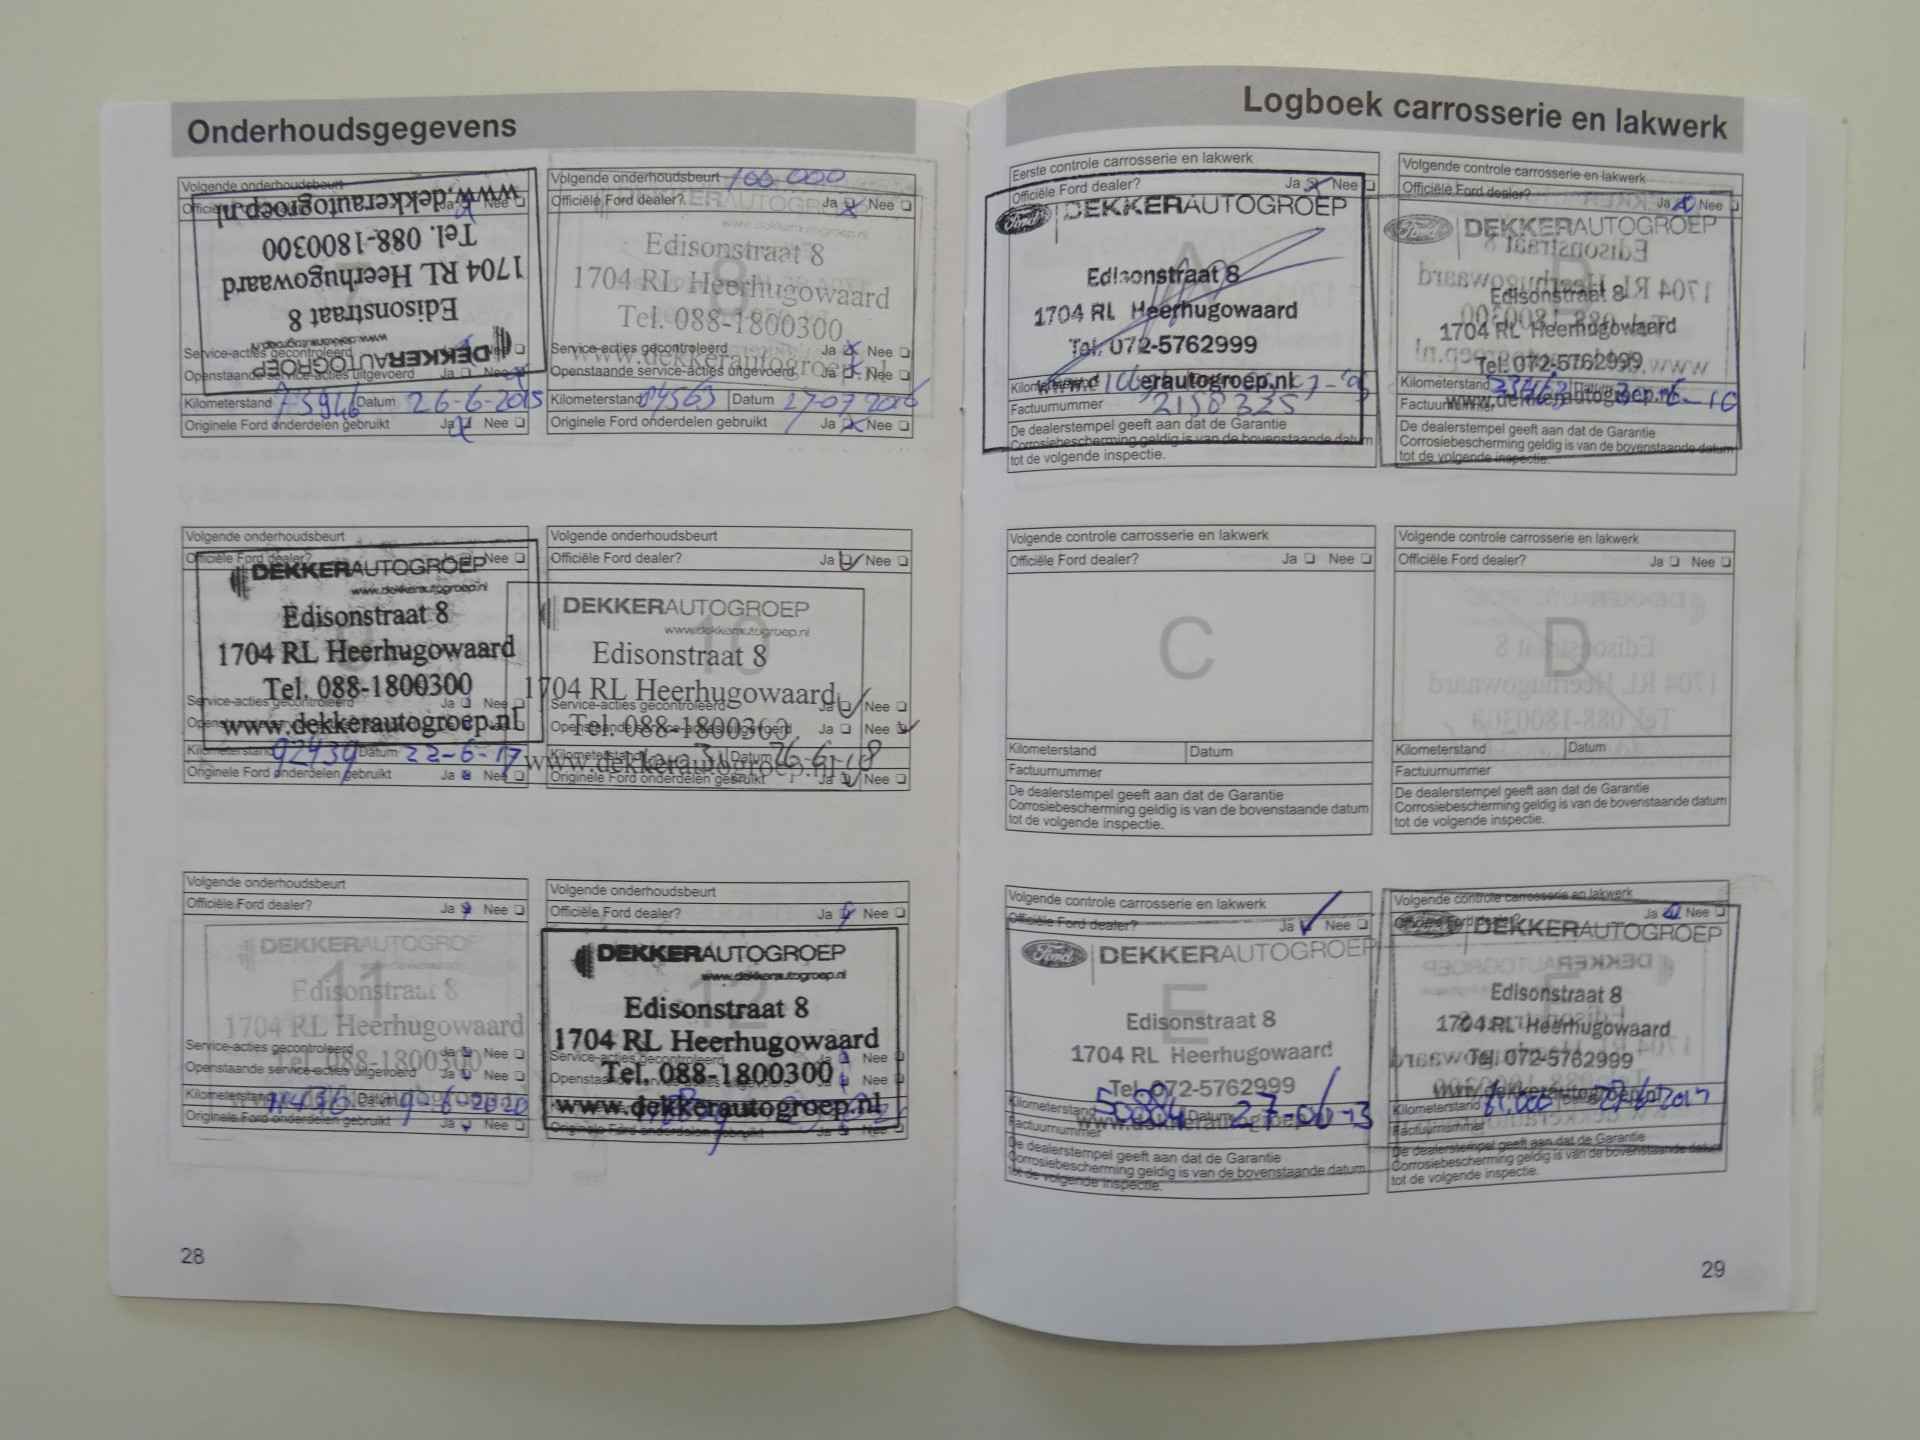 Onderhoudsgegevens
Volgende onderhoudsbeurt
Ja Nee
www.dekkerautogroep.nl
Tel. 088-1800300
1704 RL Heerhugowaard
Edisonstraat 8
www.dekkerautogroep.nl
DEKKERAUTOGROEP
Service-acties gecontroleerd
Openstaande service-acties uitgevoerd Ja Nee
Kilometerstand 75946 Datum 26-6-2015
Originele Ford onderdelen gebruikt Ja Nee
Volgende onderhoudsbeurt 100.000
Officiële Ford dealer? Ja Nee
DEKKERAUTOGROEP
www.dekkerautogroep.nl
Edisonstraat 8
8
1704 RL Heerhugowaard
Tel. 088-1800300
Service-acties gecontroleerd Ja Nee
www.dekkerautogroep
Openstaande service-acties uitgevoerd Ja Nee
Kilometerstand 84563 Datum 27-07-2016
Originele Ford onderdelen gebruikt Ja Nee
Volgende onderhoudsbeurt
Officiële Ford dealer? Nee
DEKKERAUTOGROEP
www.dekkerautogroep.nl
Edisonstraat 8
1704 RL Heerhugowaard
Tel. 088-1800300
Service-acties gecontroleerd Ja Nee
www.dekkerautogroep.nl
Kilometerstand 92439 Datum 22-6-17
Originele Ford onderdelen gebruikt Ja Nee
Volgende onderhoudsbeurt
Officiële Ford dealer? Ja Nee
DEKKERAUTOGROEP
www.dekkerautogroep.nl
10
Edisonstraat 8
1704 RL Heerhugowaard
Service-acties gecontroleerd Ja Nee
Tel. 088-1800300
Openstaande service-acties uitgevoerd Ja Nee
Kilometerstand Datum 26-6-18
www.dekkerautogroep.nl
Originele Ford onderdelen gebruikt Ja Nee
Volgende onderhoudsbeurt
Officiële Ford dealer? Ja Nee
DEKKERAUTOGROEP
11
Edisonstraat 8
1704 RL Heerhugowaard
Service-acties gecontroleerd Ja Nee
Tel. 088-1800300
Openstaande service-acties uitgevoerd Ja Nee
Kilometerstand Datum 9-6-2020
Originele Ford onderdelen gebruikt Ja Nee
Volgende onderhoudsbeurt
Officiële Ford dealer? Ja Nee
DEKKERAUTOGROEP
www.dekkerautogroep.nl
12
Edisonstraat 8
1704 RL Heerhugowaard
Service-acties gecontroleerd Ja Nee
Tel. 088-1800300
Nee
www.dekkerautogroep.nl
Originele Ford onderdelen gebruikt Ja Nee
28
Logboek carrosserie en lakwerk
Eerste controle carrosserie en lakwerk
Officiële Ford dealer? Ja Nee
Ford DEKKERAUTOGROEP
A
Edisonstraat 8
1704 RL Heerhugowaard
Tel. 072-5762999
erautogroep.nl
Factuurnummer 2158325
De dealerstempel geeft aan dat de Garantie
Corrosiebescherming geldig is van de bovenstaande datum
tot de volgende inspectie.
Volgende controle carrosserie en lakwerk
Officiële Ford dealer? Ja Nee
Ford DEKKERAUTOGROEP
B
Edisonstraat 8
1704 RL Heerhugowaard
Tel. 072-5762999
Kilometerstand Datum
Factuurnummer
www.dekkerautogroep.nl
De dealerstempel geeft aan dat de Garantie
Corrosiebescherming geldig is van de bovenstaande datum
tot de volgende inspectie.
Volgende controle carrosserie en lakwerk
Officiële Ford dealer? Ja Nee
C
Kilometerstand Datum
Factuurnummer
De dealerstempel geeft aan dat de Garantie
Corrosiebescherming geldig is van de bovenstaande datum
tot de volgende inspectie.
Volgende controle carrosserie en lakwerk
Officiële Ford dealer? Ja Nee
D
Kilometerstand Datum
Factuurnummer
De dealerstempel geeft aan dat de Garantie
Corrosiebescherming geldig is van de bovenstaande datum
tot de volgende inspectie.
Volgende controle carrosserie en lakwerk
Officiële Ford dealer? Ja Nee
Ford DEKKERAUTOGROEP
E
Edisonstraat 8
1704 RL Heerhugowaard
Tel. 072-5762999
Kilometerstand 50884 Datum 27-06-13
Factuurnummer
De dealerstempel geeft aan dat de Garantie
Corrosiebescherming geldig is van de bovenstaande datum
tot de volgende inspectie.
Volgende controle carrosserie en lakwerk
Ja Nee
DEKKERAUTOGROEP
Edisonstraat 8
1704 RL Heerhugowaard
Tel. 072-5762999
www.dekkerautogroep.nl
Kilometerstand
Factuurnummer
De dealerstempel geeft aan dat de Garantie
Corrosiebescherming geldig is van de bovenstaande datum
tot de volgende inspectie.
29